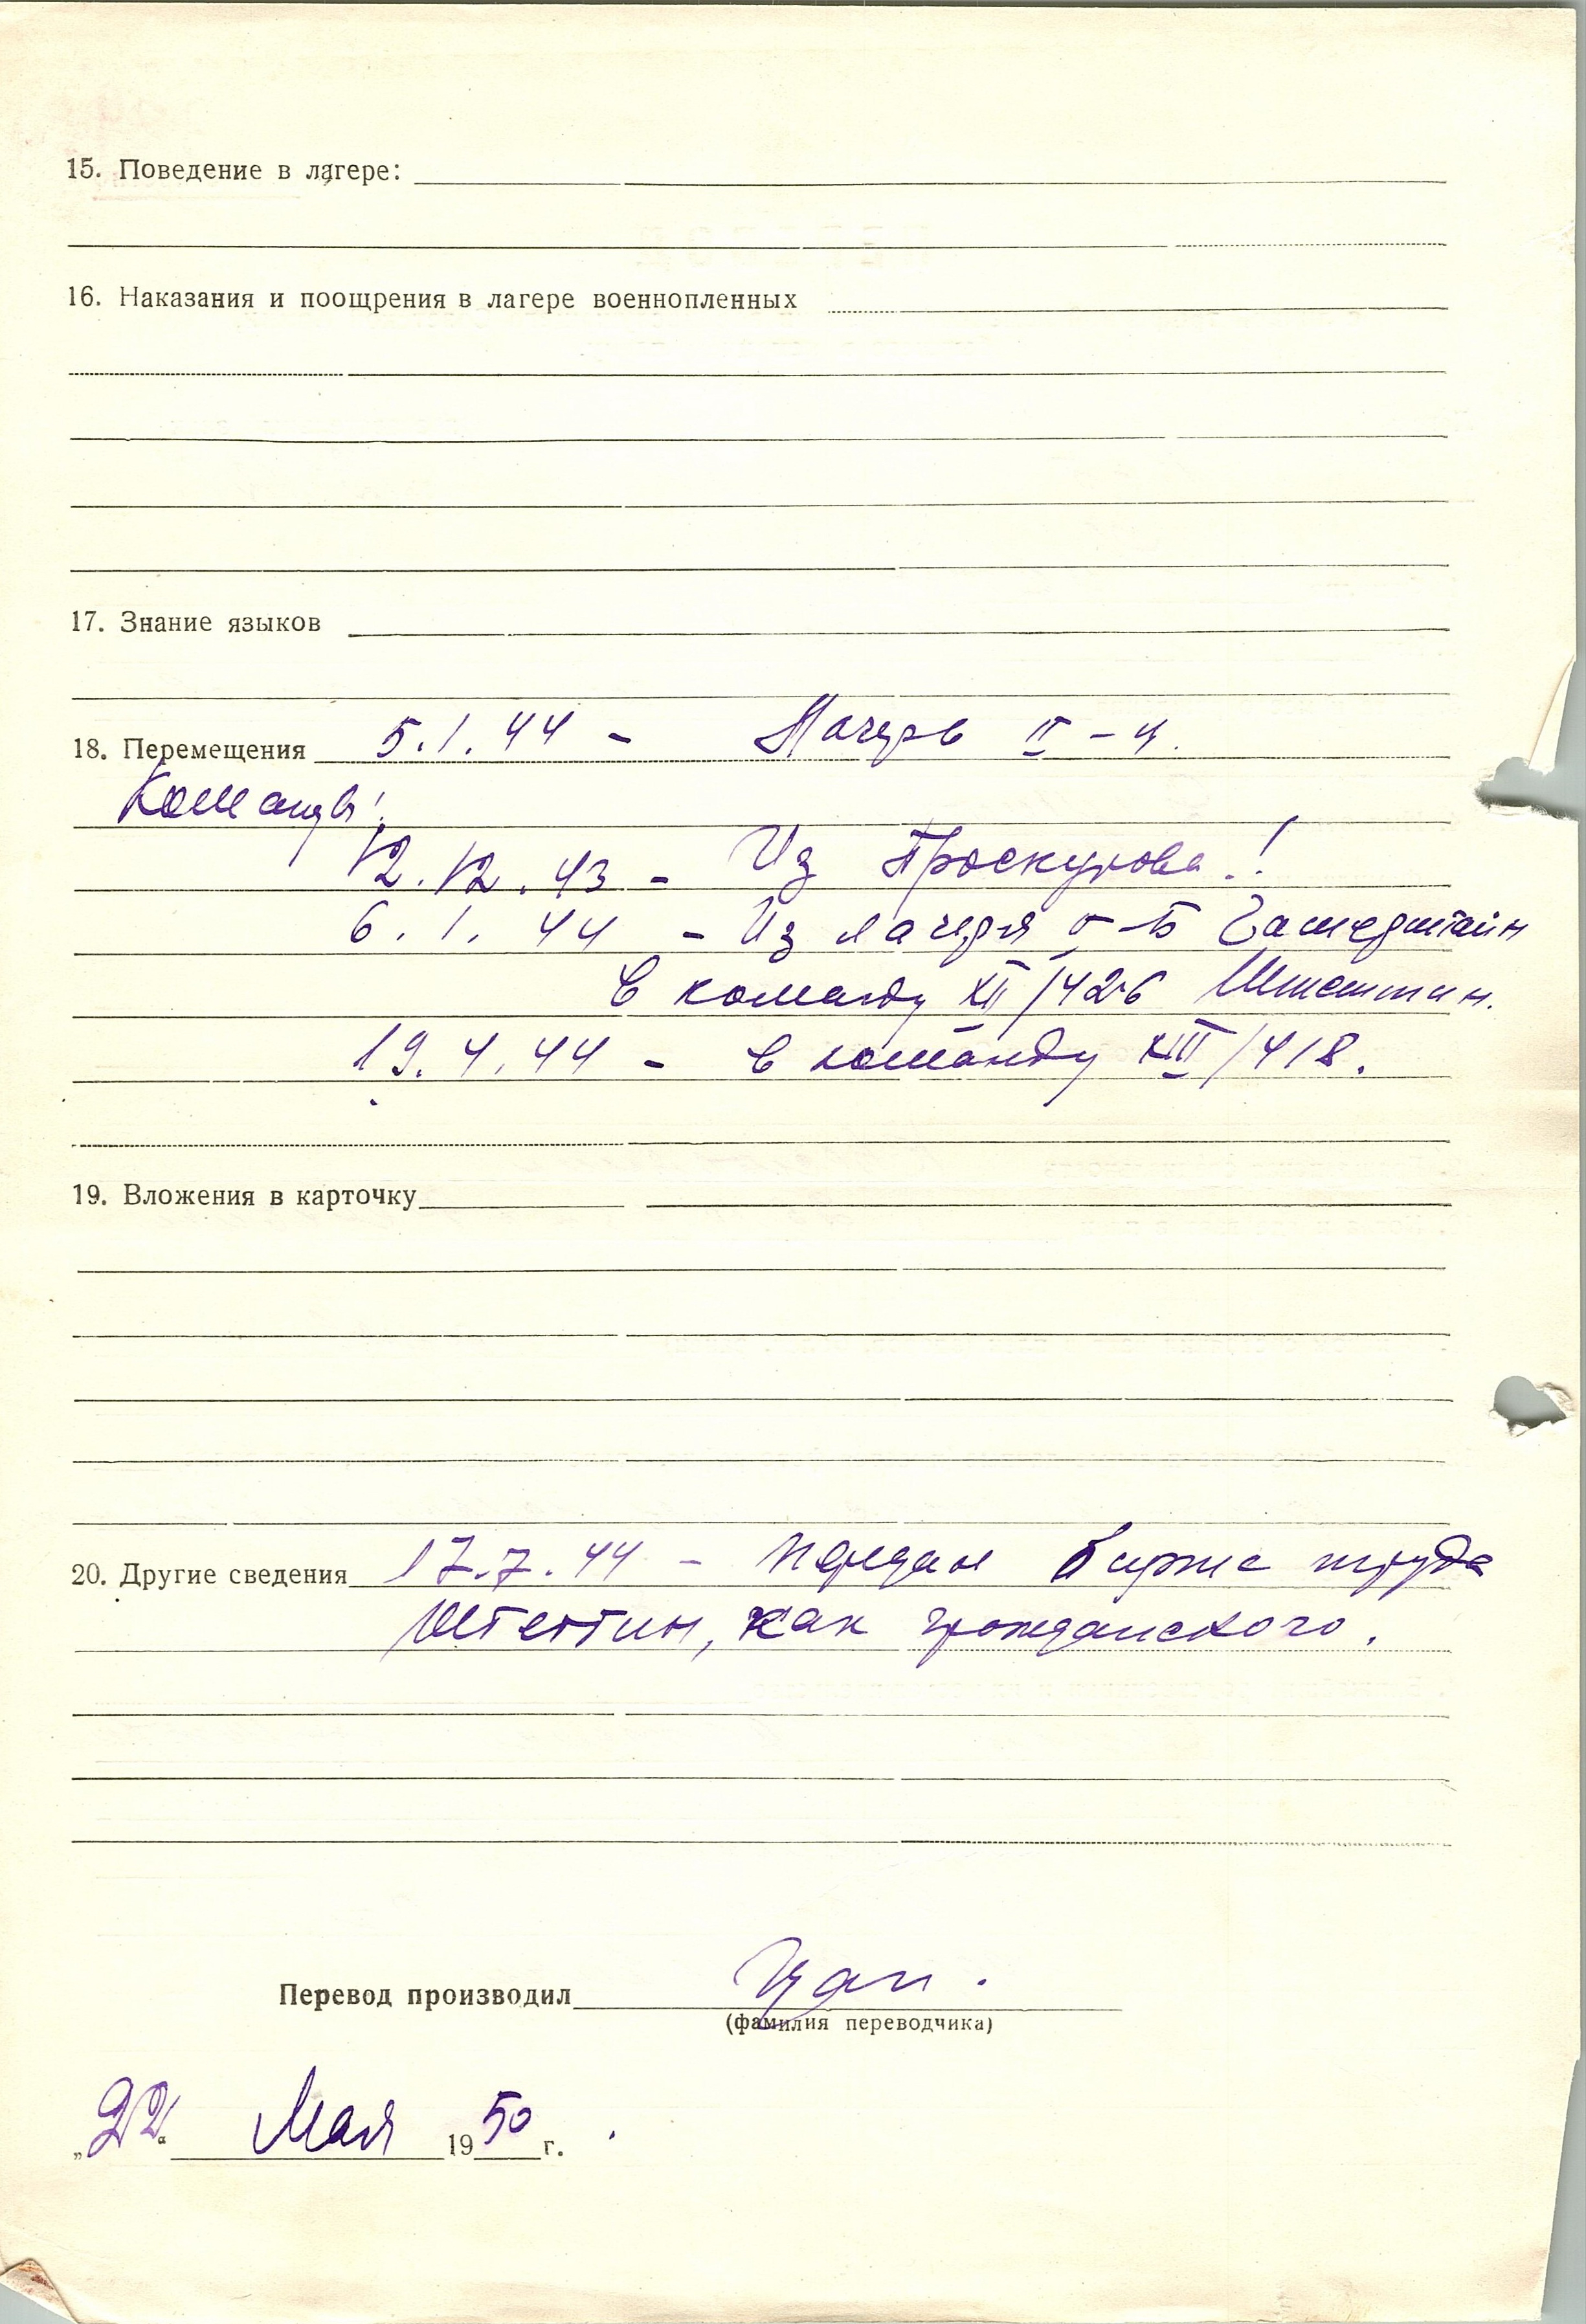 15. Поведение в лагере:
16. Наказания и поощрения в лагере военнопленных
17. Знание языков
18. Перемещения 5.1.44 - Лагерь II-
Команды:
12.12.43 - Из Проскурова!
6.1.44 - Из лагеря -Б Гамерштайн
в команду XII/426 Штеттин.
19.4.44 - в команду XIII/418.
19. Вложения в карточку
20. Другие сведения 17.7.44 - передан бирже труда
Штеттин, как гражданского.
Перевод производил
(фамилия переводчика)
„22“ Мая 1950 г.